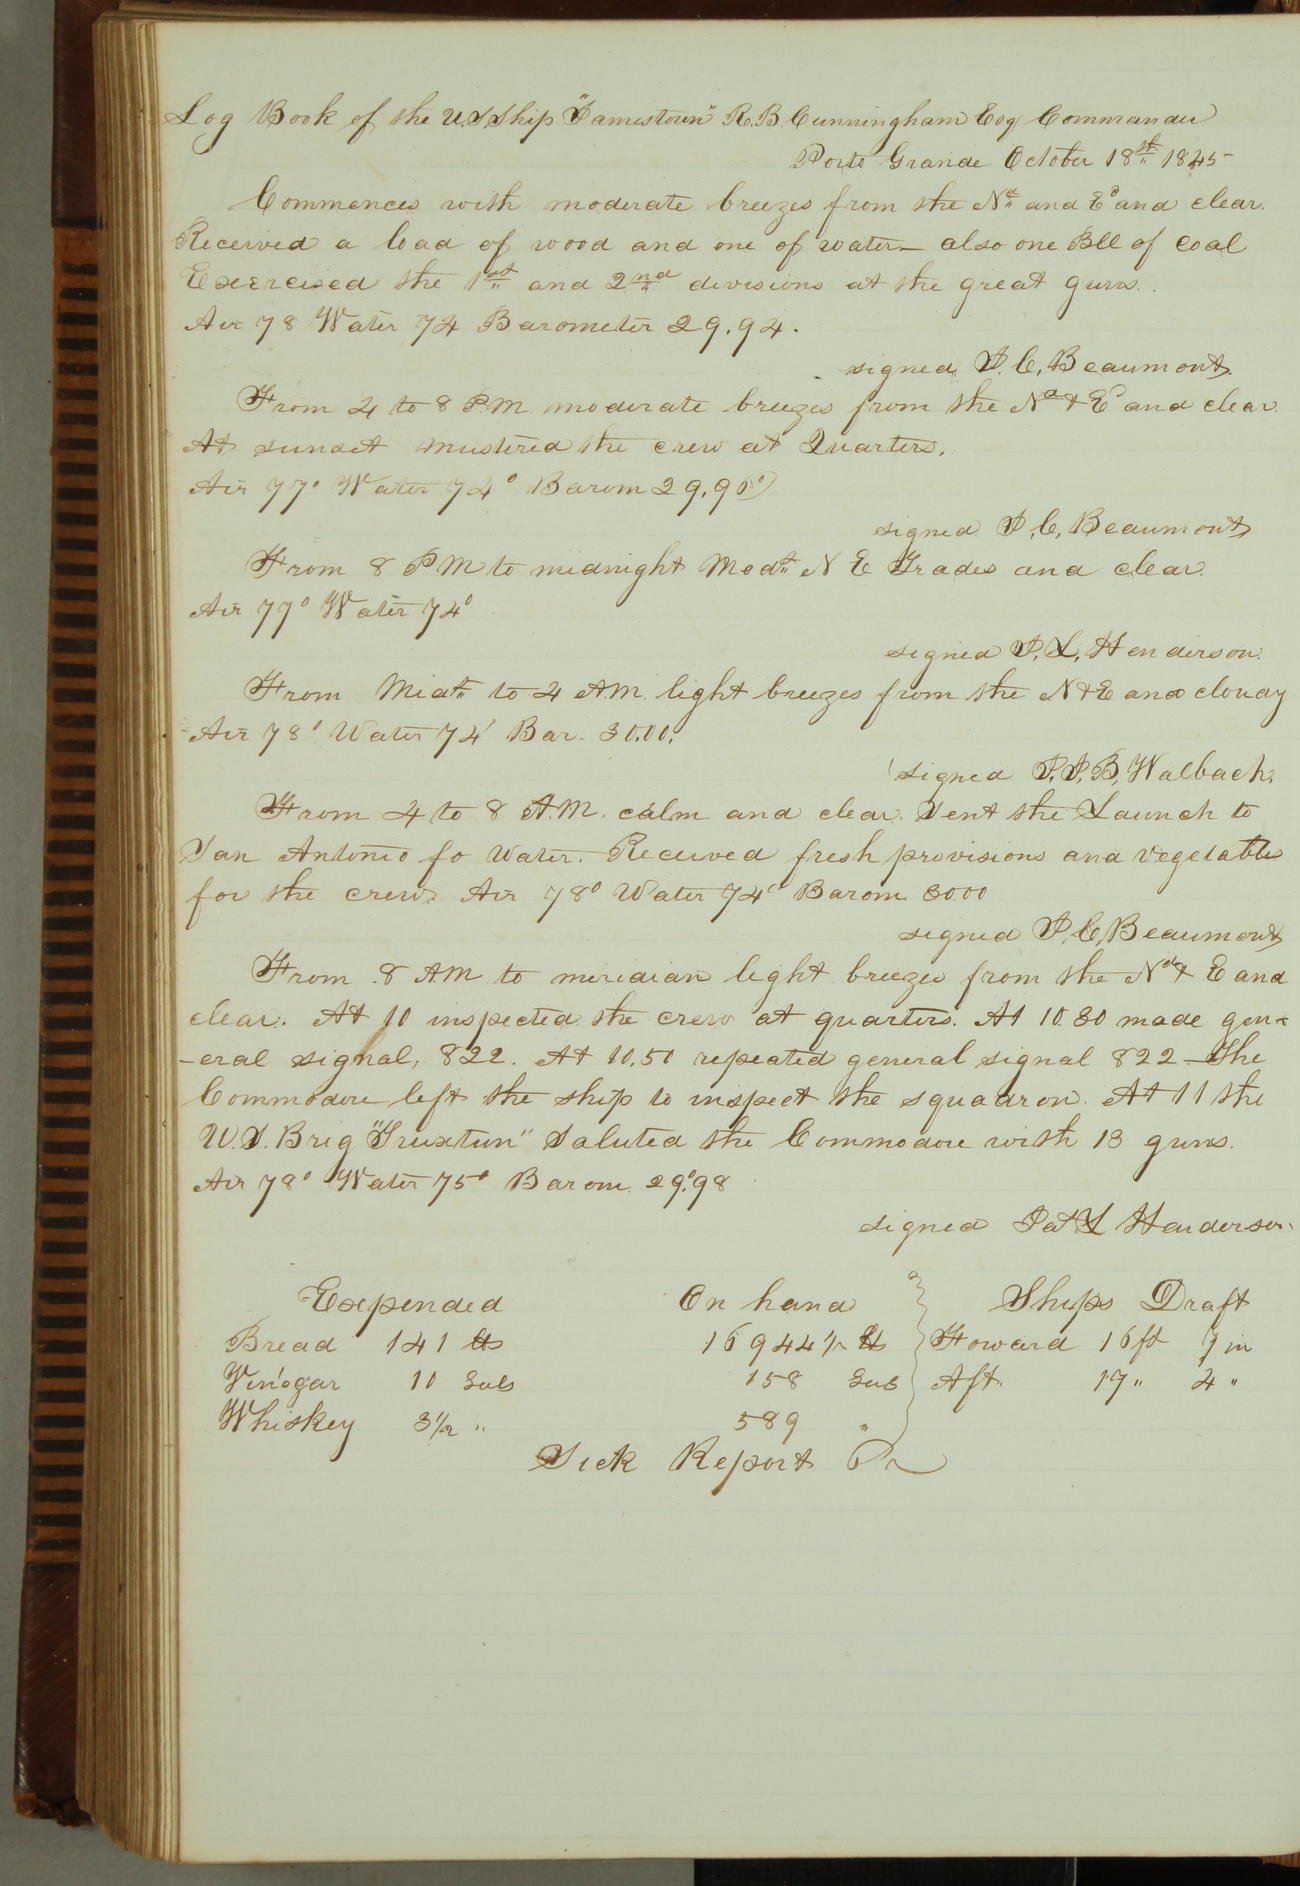 Log Book of the U.S. Ship "Jamestown" R.B. Cunningham Esq Commander
Porto Grande October 18st 1845-
Commences with moderate breezes from the Nd and Ed and clear.
Received a load of wood and one of water— also one Bll of coal
Exercised the 1st and 2nd divisions at the great guns.
Air 78 Water 74 Barometer 29.94.
signed J.C. Beaumont.
From 4 to 8 P.M. moderate breezes from the Nd & Ed and clear.
At sunset mustered the crew at Quarters.
Air 77° Water 74° Barom 29.90
signed J.C. Beaumont
From 8 P M to midnight Modt N E Trades and clear.
Air 77° Water 74°
signed P.L. Henderson.
From Midt to 4 AM. light breezes from the N & E and cloudy
Air 78° Water 74° Bar. 30.00.
signed J.J.B. Walbach.
From 4 to 8 A.M. calm and clear. Sent the Launch to
San Antonio fo Water. Received fresh provisions and vegetables
for the crew. Air 78° Water 74° Barom. 30.00
signed J.C. Beaumont
From 8 AM to meridian light breezes from the Nd & E and
clear. At 10 inspected the crew at quarters. At 10.30 made gen-
-eral signal, 822. At 10.50 repeated general signal 822—The
Commodore left the ship to inspect the squadron. At 11 the
U.S. Brig "Truxtun" Saluted the Commodore with 13 guns.
Air 78° Water 75° Barom. 29.98
signed Jas L Henderson.
Expended On hand Ships Draft
Bread 141 lbs 16944½ lbs Foward 16 ft 7 in
Vinegar 10 Gals 158 Gals Aft. 17 " 4 "
Whiskey 3½ " 589 "
Sick Report